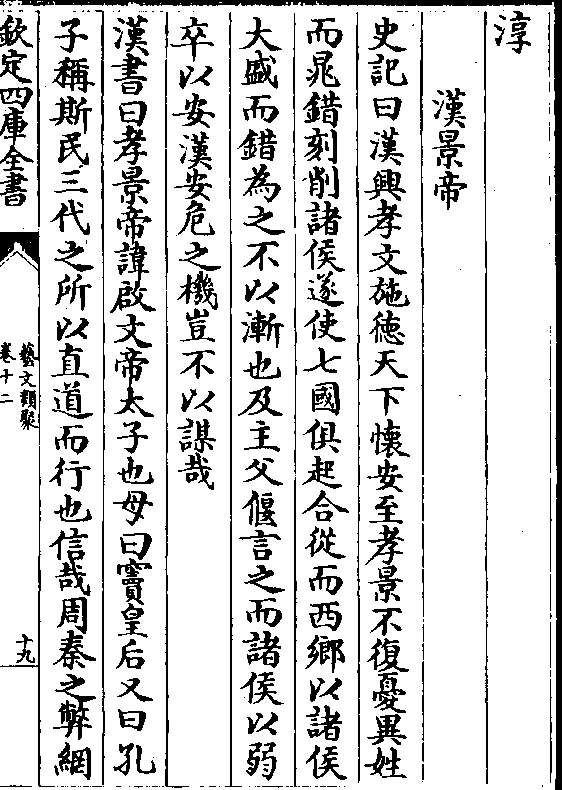 淳
漢景帝
史記曰漢興孝文施徳天下懷安至孝景不復憂異姓
而鼂錯刻削諸侯遂使七國俱起合從而西鄉以諸侯
大盛而錯為之不以漸也及主父偃言之而諸侯以弱
卒以安漢安危之機豈不以謀哉
漢書曰孝景帝諱啟文帝太子也母曰竇皇后又曰孔
子稱斯民三代之所以直道而行也信哉周秦之弊網
欽定四庫全書
藝文類聚
卷十二
十九